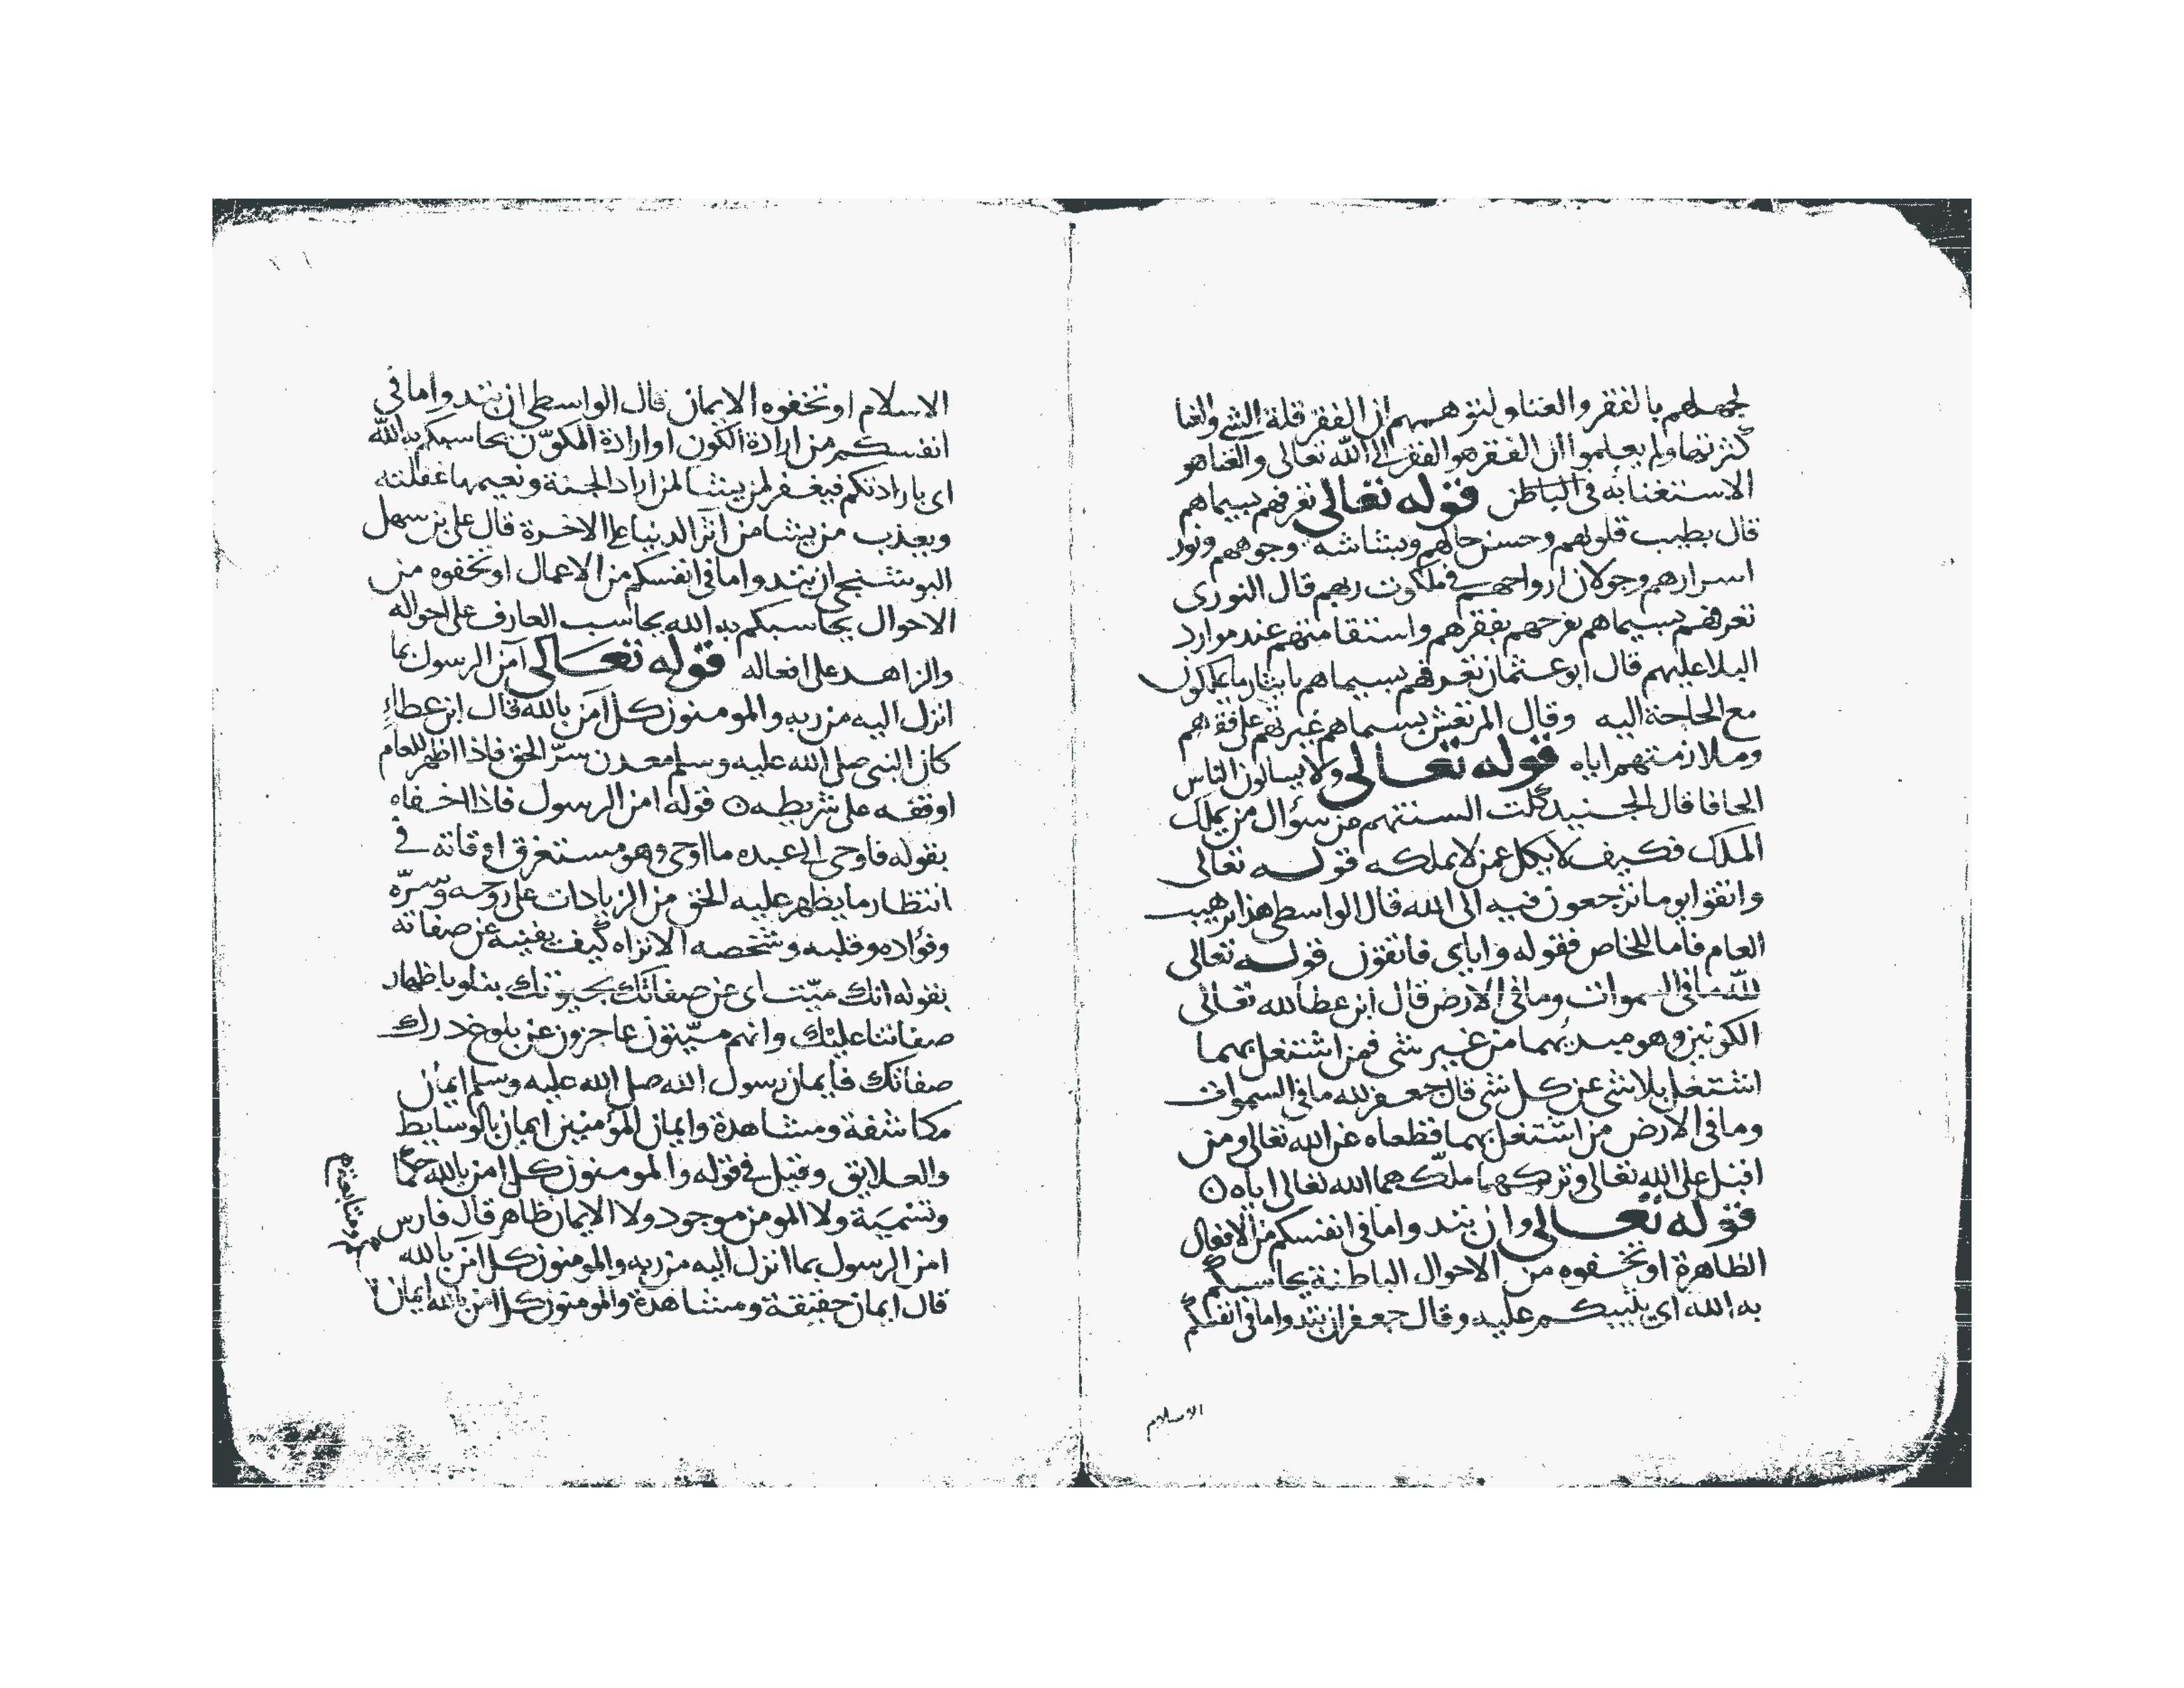 لجهلهم بالفقر والغنا ولتوهمهم ان الفقر قلة الشي والغنا
كثرتها ولم يعلموا ان الفقر هو الفقر الى الله تعالى والغنا هو
الاستغنا به في الباطن قوله تعالى تعرفهم بسيماهم
قال بطيب قلوبهم وحسن حالهم وبشاشة وجوههم ونور
اسرارهم وجولان ارواحهم في ملكوت ربهم قال النوري
تعرفهم بسيماهم بفرحهم بفقرهم واستقامتهم عند موارد
البلا عليهم قال ابو عثمان تعرفهم بسيماهم بايثار ما يملكون
مع الحاجة اليه وقال المرتعش بسيماهم غيرتهم على فقرهم
وملازمتهم اياه قوله تعالى ولا يسالون الناس
الحافا قال الجنيد كلت السنتهم عن سؤال من يملك
الملك فكيف لا يكل عمن لا يملكه قوله تعالى
واتقوا يوما ترجعون فيه الى الله قال الواسطي هذا ترهيب
العام فاما للخاص فقوله واياي فاتقون قوله تعالى
لله ما في السموات وما في الارض قال ابن عطا لله تعالى
الكونين وهو مبديهما من غير شي فمن اشتغل بهما
اشتغل بلا شي عن كل شي قال جعفر لله ما في السموات
وما في الارض من اشتغل بهما قطعاه عن الله تعالى ومن
اقبل على الله تعالى وتركهما ملكهما الله تعالى اياه ن
قوله تعالى وان تبدوا ما في انفسكم من الافعال
الظاهرة او تخفوه من الاحوال الباطنة يحاسبكم
به الله اي يثيبكم عليه وقال جعفر ان تبدوا ما في انفسكم
الاسلام
الاسلام او تخفوه الايمان قال الواسطي ان تبدوا ما في
انفسكم من ارادة الكون او ارادة المكوّن يحاسبكم به الله
اي بارادتكم فيغفر لمن يشا لمن اراد الجنة ونعيمها غفلته
ويعذب من يشا من آثر الدنيا على الاخرة قال علي بن سهل
البوشنجي ان تبدوا ما في انفسكم من الاعمال او تخفوه من
الاحوال يحاسبكم به الله يحاسب العارف على احواله
والزاهد على افعاله قوله تعالى آمن الرسول بما
انزل اليه من ربه والمومنون كل آمن بالله قال ابن عطاء
كان النبي صلى الله عليه وسلم معدن سرّ الحق فاذا اظهر للعام
اوقفه على شريطه ن قوله امن الرسول فاذا اخفاه
بقوله فاوحى الى عبده ما اوحى وهو مستغرق اوقاته في
انتظار ما يظهر عليه الحق من الزيادات على روحه وسرّه
وفؤاده وقلبه وشخصه الا تراه كيف يفنيه عن صفاته
بقوله انك ميّت اي عن صفاتك بحيوتك بنا وباظهار
صفاتنا عليك وانهم ميّتون عاجزون عن بلوغ درك
صفاتك فايمان رسول الله صلى الله عليه وسلم ايمان
مكاشفة ومشاهدة وايمان المؤمنين ايمان بالوسايط
والعلايق وقيل في قوله والمومنون كل امن بالله حكما
وتسمية ولا المومن موجود ولا الايمان ظاهر قال فارس
امن الرسول بما انزل اليه من ربه والمومنون كل امن بالله
قال ايمان حقيقة ومشاهدة والمومنون كل امن بالله ايمان